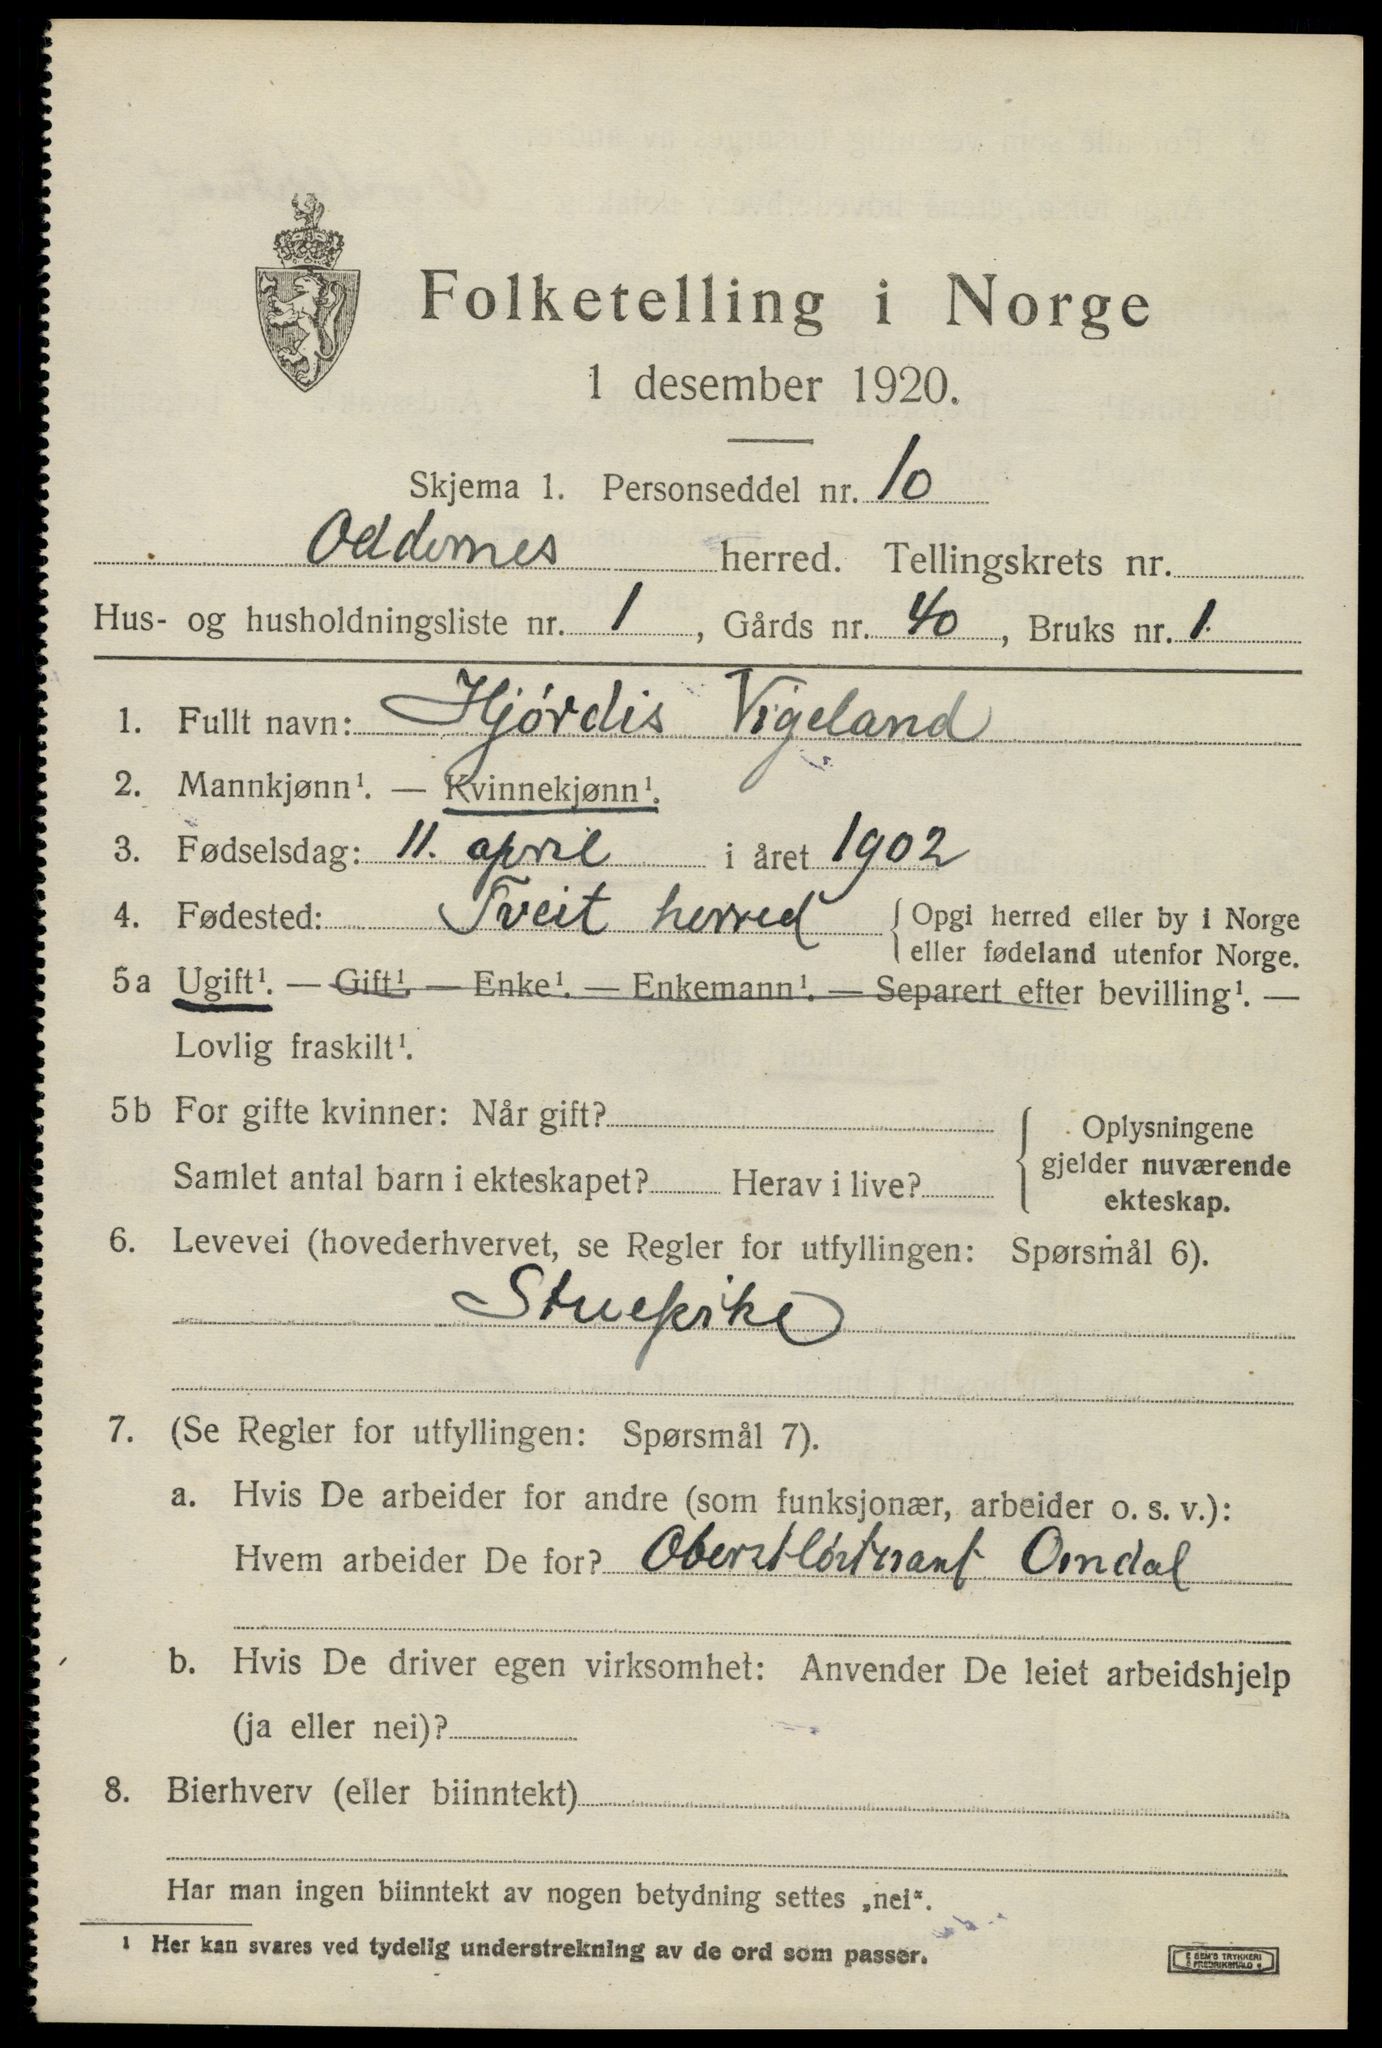 Folketelling i Norge
1 desember 1920.
Skjema 1. Personseddel nr. 10
Oddernes herred. Tellingskrets nr.
Hus- og husholdningsliste nr. 1, Gårds nr. 40, Bruks nr. 1.
1. Fullt navn: Hjørdis Vigeland
2. Mannkjønn¹. — Kvinnekjønn¹.
3. Fødselsdag: 11. april i året 1902
4. Fødested: Tveit herred { Opgi herred eller by i Norge
eller fødeland utenfor Norge.
5a Ugift¹. — Gift¹. — Enke¹. — Enkemann¹. — Separert efter bevilling¹. —
Lovlig fraskilt¹.
5b For gifte kvinner: Når gift?
Samlet antal barn i ekteskapet? Herav i live?
{ Oplysningene
gjelder nuværende
ekteskap.
6. Levevei (hovederhvervet, se Regler for utfyllingen: Spørsmål 6).
Stuepike
7. (Se Regler for utfyllingen: Spørsmål 7).
a. Hvis De arbeider for andre (som funksjonær, arbeider o. s. v.):
Hvem arbeider De for? Oberstløitnant Omdal
b. Hvis De driver egen virksomhet: Anvender De leiet arbeidshjelp
(ja eller nei)?
8. Bierhverv (eller biinntekt)
Har man ingen biinntekt av nogen betydning settes „nei".
¹ Her kan svares ved tydelig understrekning av de ord som passer.
SEM'S TRYKKERI
FREDRIKSHALD